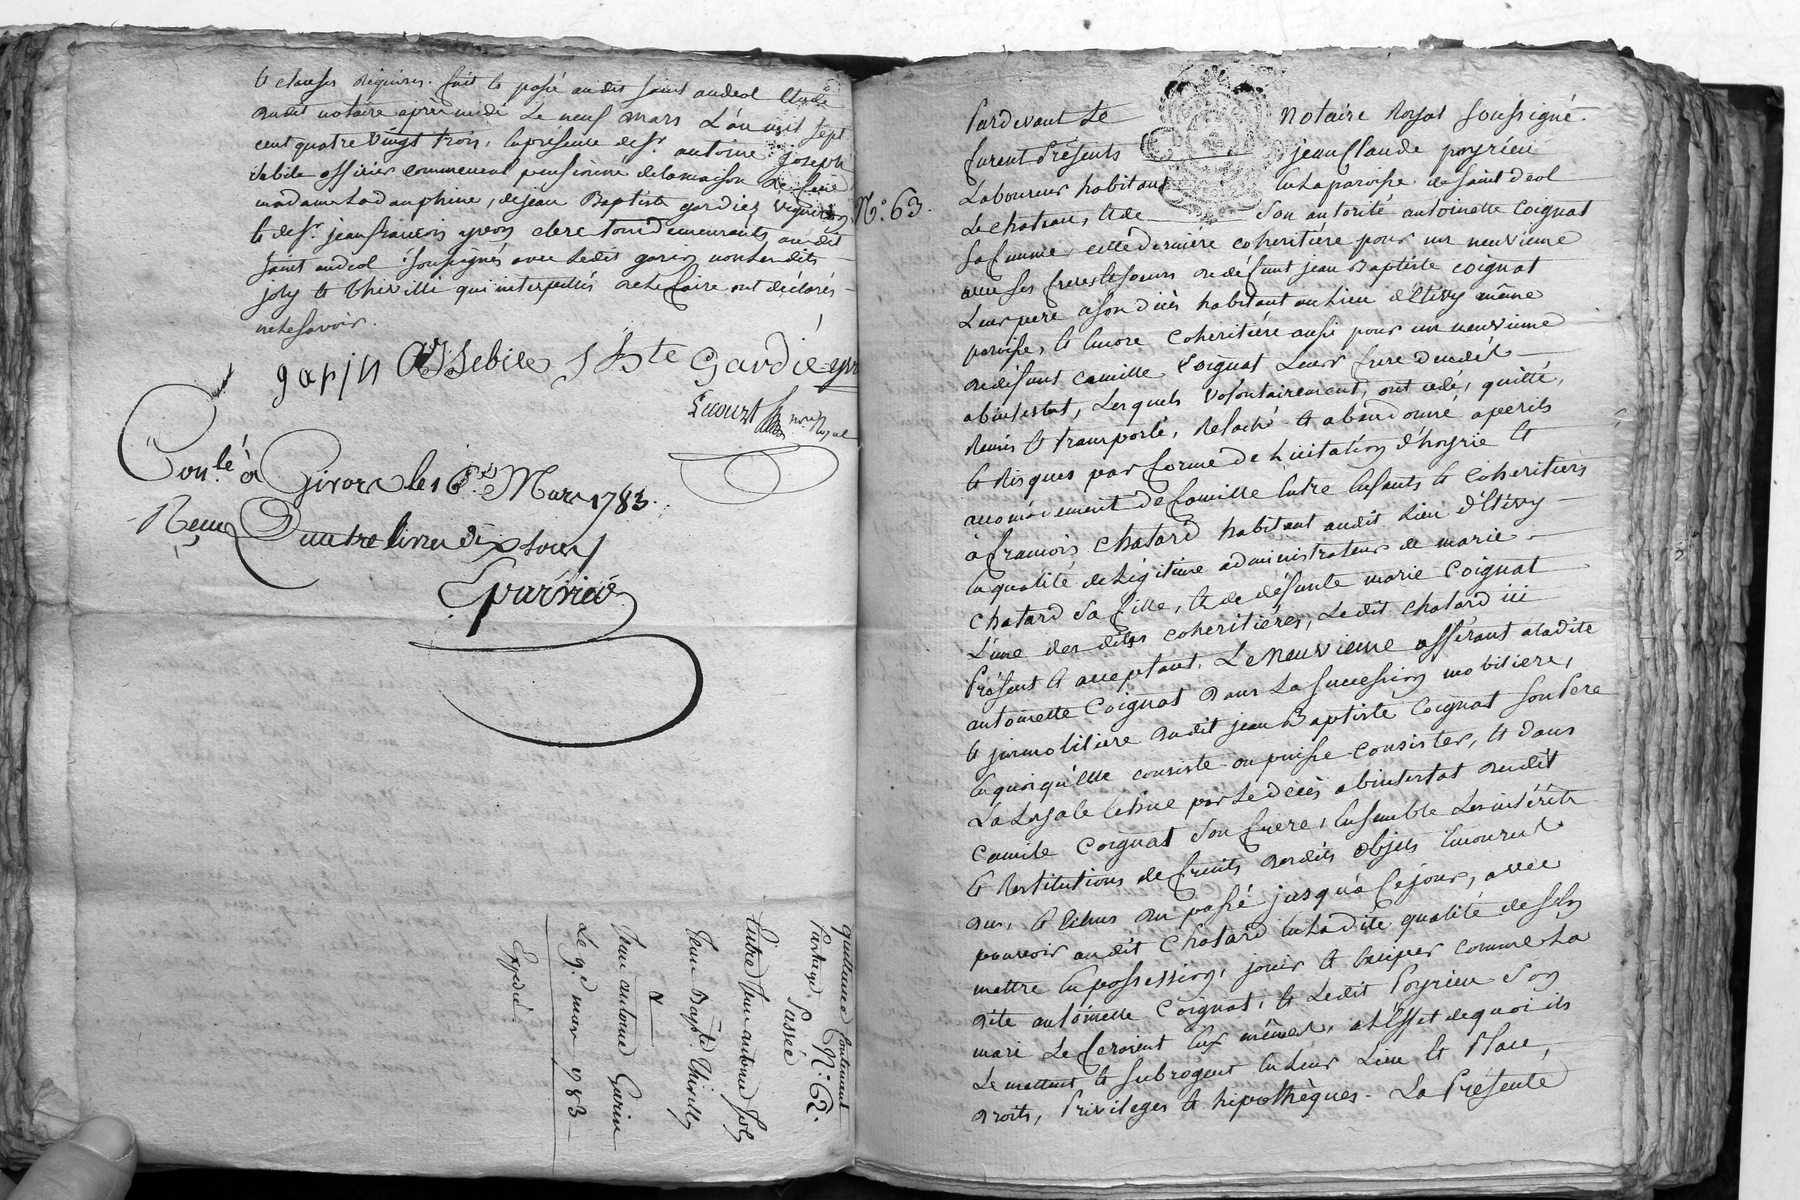 et clauses requises. fait et passé audit saint andeol étude
dudit notaire après midi Le neuf mars L'an mil sept
cent quatre vingt trois, En présence de sr. antoine joseph
debile officier commensal pensionné de la maison de feue
madame La dauphine, de jean Baptiste gardiez vigneron
et de sr. jean françois yvon clerc tous demeurants audit
saint andeol soussignés avec Ledit garin non Lesdits
joly et thivilli qui interpellés de ce faire ont déclarés
ne le savoir.
garin Debile J Bte Gardié yvon
Lecourt
nore Royal
Conlé à Givors le 16 Mars 1783.
Reçu Quatre livres dix sous
Eparvier
quittance Contenant
partage N.o 62.
Passée
Entre Jean antoine Joly
Jean Bapte. Thivilly
&
Jean antoine Garin
Le 9e. mars 1783
Expdié.
N.o 63.
Pardevant Le Notaire Royal soussigné
furent Présents jean Claude poyrieu
Laboureur habitant En La paroisse de saint deol
Le chateau, et de Son autorité antoinette Coignat
sa femme, cette derniére coheritière pour un neuvieme
avec ses freres et soeurs de défunt jean Baptiste coignat
Leur pere à son décès habitant au Lieu d'Etivy même
paroisse, et Encore Coheritiére aussi pour un neuvieme
de défunt camille Coignat Leur frere decedé
abintestat, Lesquels volontairement, ont cédé, quitté,
Remis et transporté, Relaché et abandonné à perils
et Risques par forme de Licitation d'hoyrie et
accomodement de famille Entre Enfants et Coheritiers
à françois chatard habitant audit Lieu d'Etivy
En qualité de Légitime administrateur de marie
chatard Sa fille, et de défunte marie Coignat
L'une des dites coheritiéres, Ledit chatard ici
Présent et acceptant, Le neuvieme afférant à ladite
antoinette Coignat dans La succession mobiliere,
et immobiliere dudit jean Baptiste Coignat Son Pere
En quoi qu'elle consiste ou puisse consister, et dans
La Legale Echue par Le décès abintestat dudit
Camile Coignat Son frere, Ensemble Les intérêts
et Restitutions de fruits desdits objets Encourus
dus, et Echus du passé jusqu'à ce jour, avec
pouvoir audit Chatard En Ladite qualité de s'en
mettre En possession, jouir et En user comme La
dite antoinette Coignat, et Ledit Poyrieu Son
mari Le feroient Eux mêmes, à L'effet de quoi ils
Le mettent et subrogent En Leur Lieu et Place,
droits, Privileges et hipothèques. La Présente